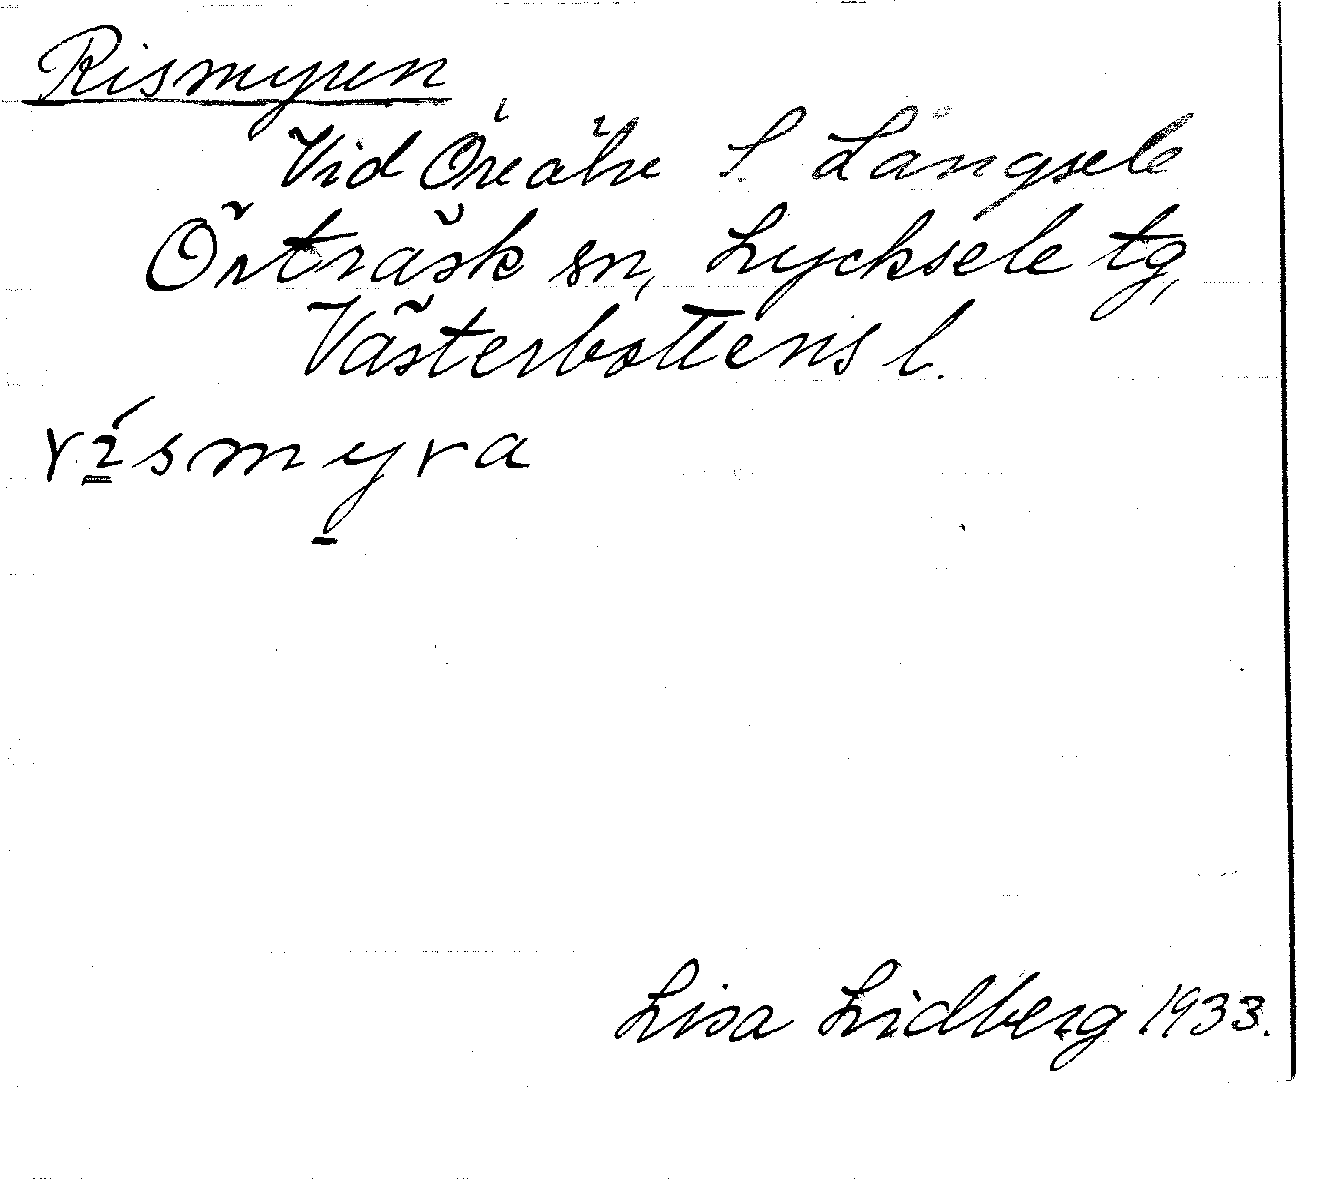 Rismyren
Vid Öreälv S. Långsele
Örträsk sn, Lycksele tg,
Västerbottens l.
rísmyra
Lisa Lidberg 1933.